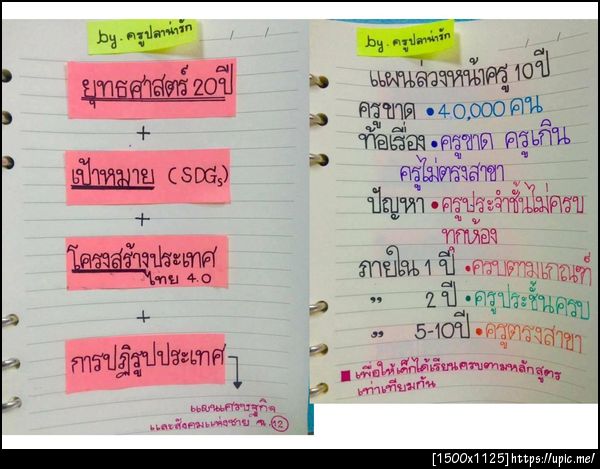 by. ครูปลาน่ารัก
ยุทธศาสตร์ 20 ปี
+
เป้าหมาย (SDGs)
+
โครงสร้างประเทศ
ไทย 4.0
+
การปฏิรูปประเทศ
แผนเศรษฐกิจ
และสังคมแห่งชาติ ฉ. 12
by. ครูปลาน่ารัก
แผนล่วงหน้าครู 10 ปี
ครูขาด • 40,000 คน
ท้อเรื่อง • ครูขาด ครูเกิน
ครูไม่ตรงสาขา
ปัญหา • ครูประจำชั้นไม่ครบ
ทุกห้อง
ภายใน 1 ปี • ครบตามเกณฑ์
,, 2 ปี • ครูประชั้นครบ
,, 5-10 ปี • ครูตรงสาขา
■ เพื่อให้เด็กได้เรียนครบตามหลักสูตร
เท่าเทียมกัน
[1500x1125]https://upic.me/